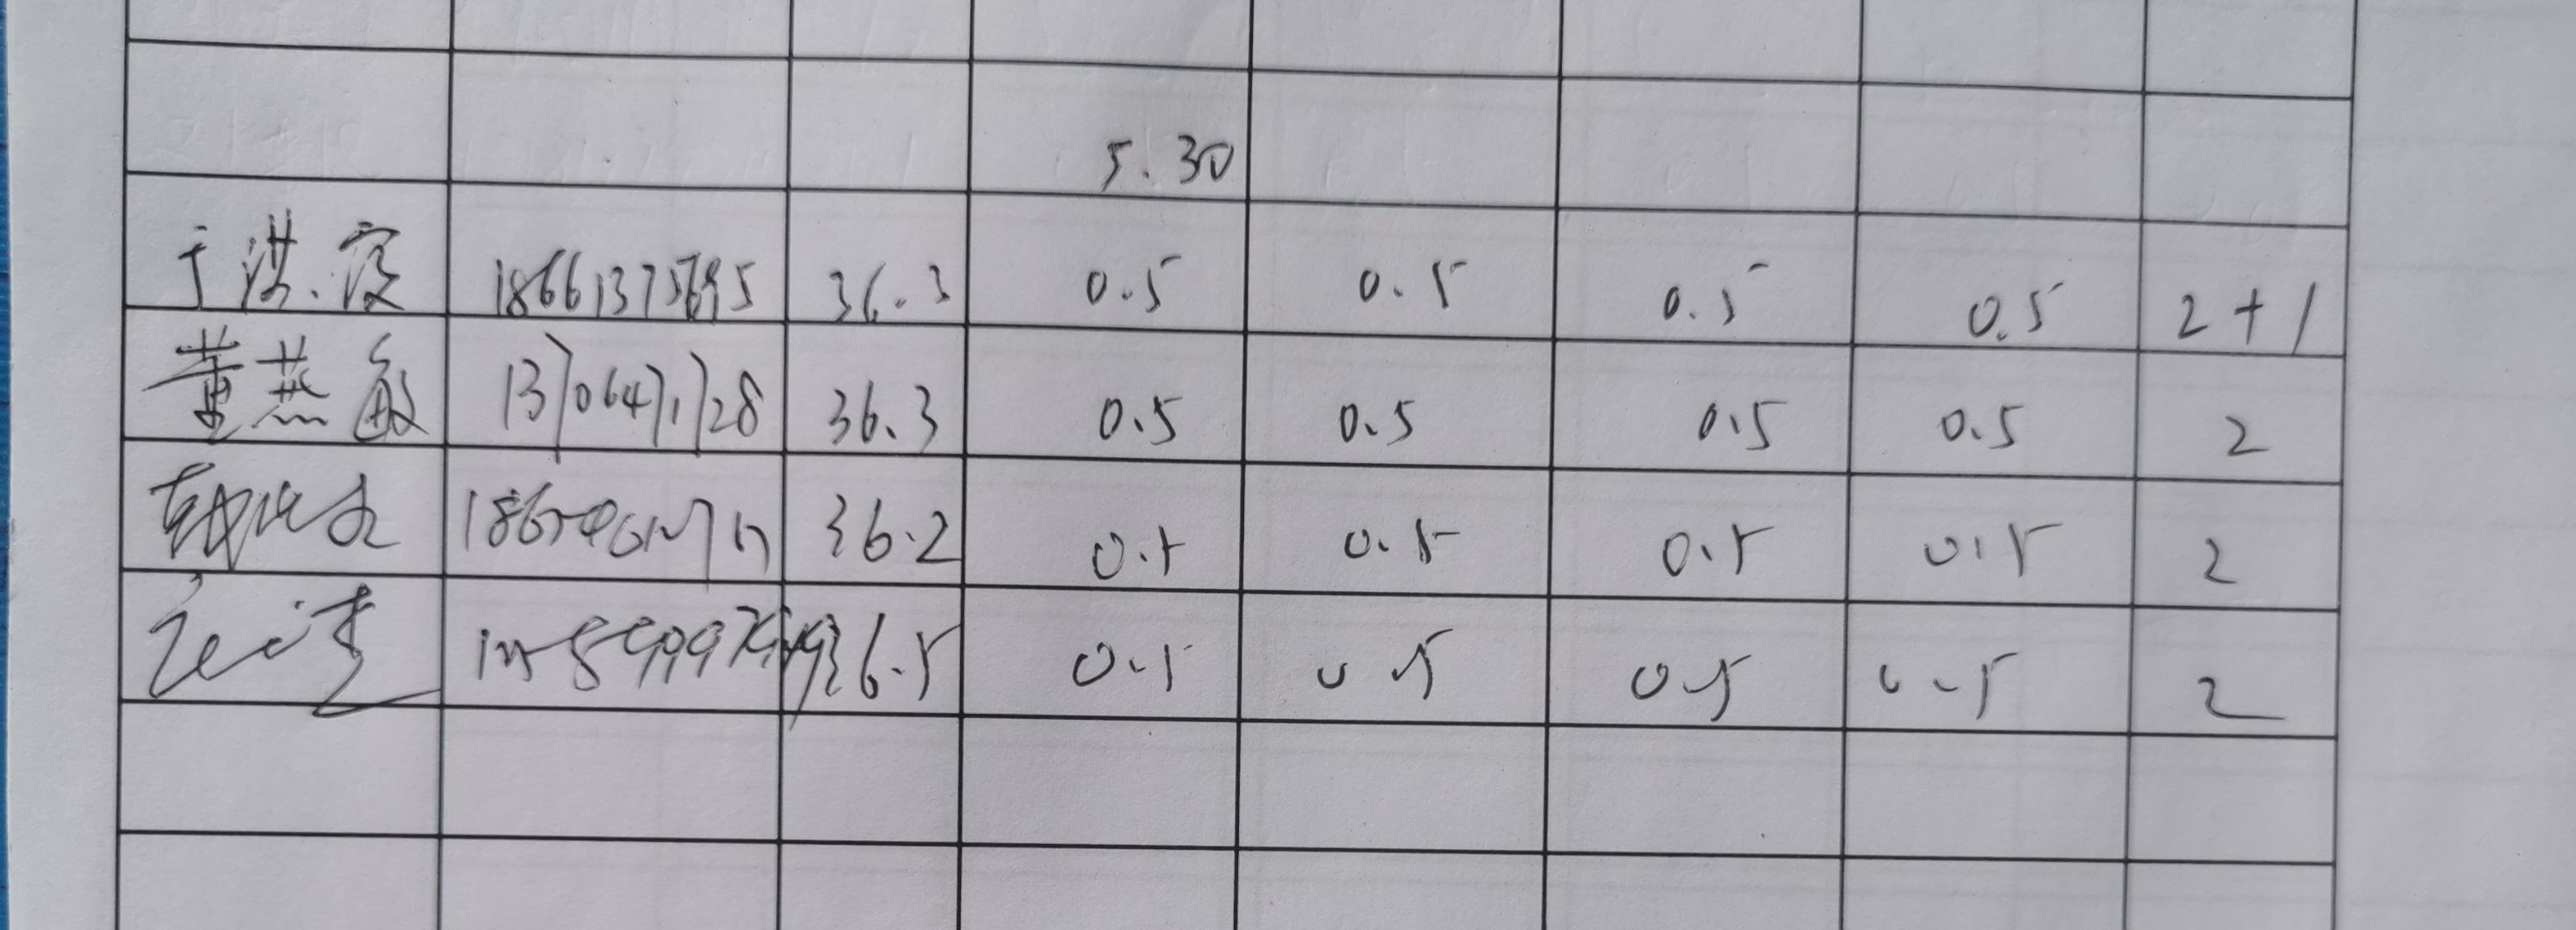 5.30
于洪霞 18661375695 36.3 0.5 0.5 0.5 0.5 2+1
董燕敏 13706471728 36.3 0.5 0.5 0.5 0.5 2
36.2 0.5 0.5 0.5 0.5 2
36.5 0.5 0.5 0.5 0.5 2